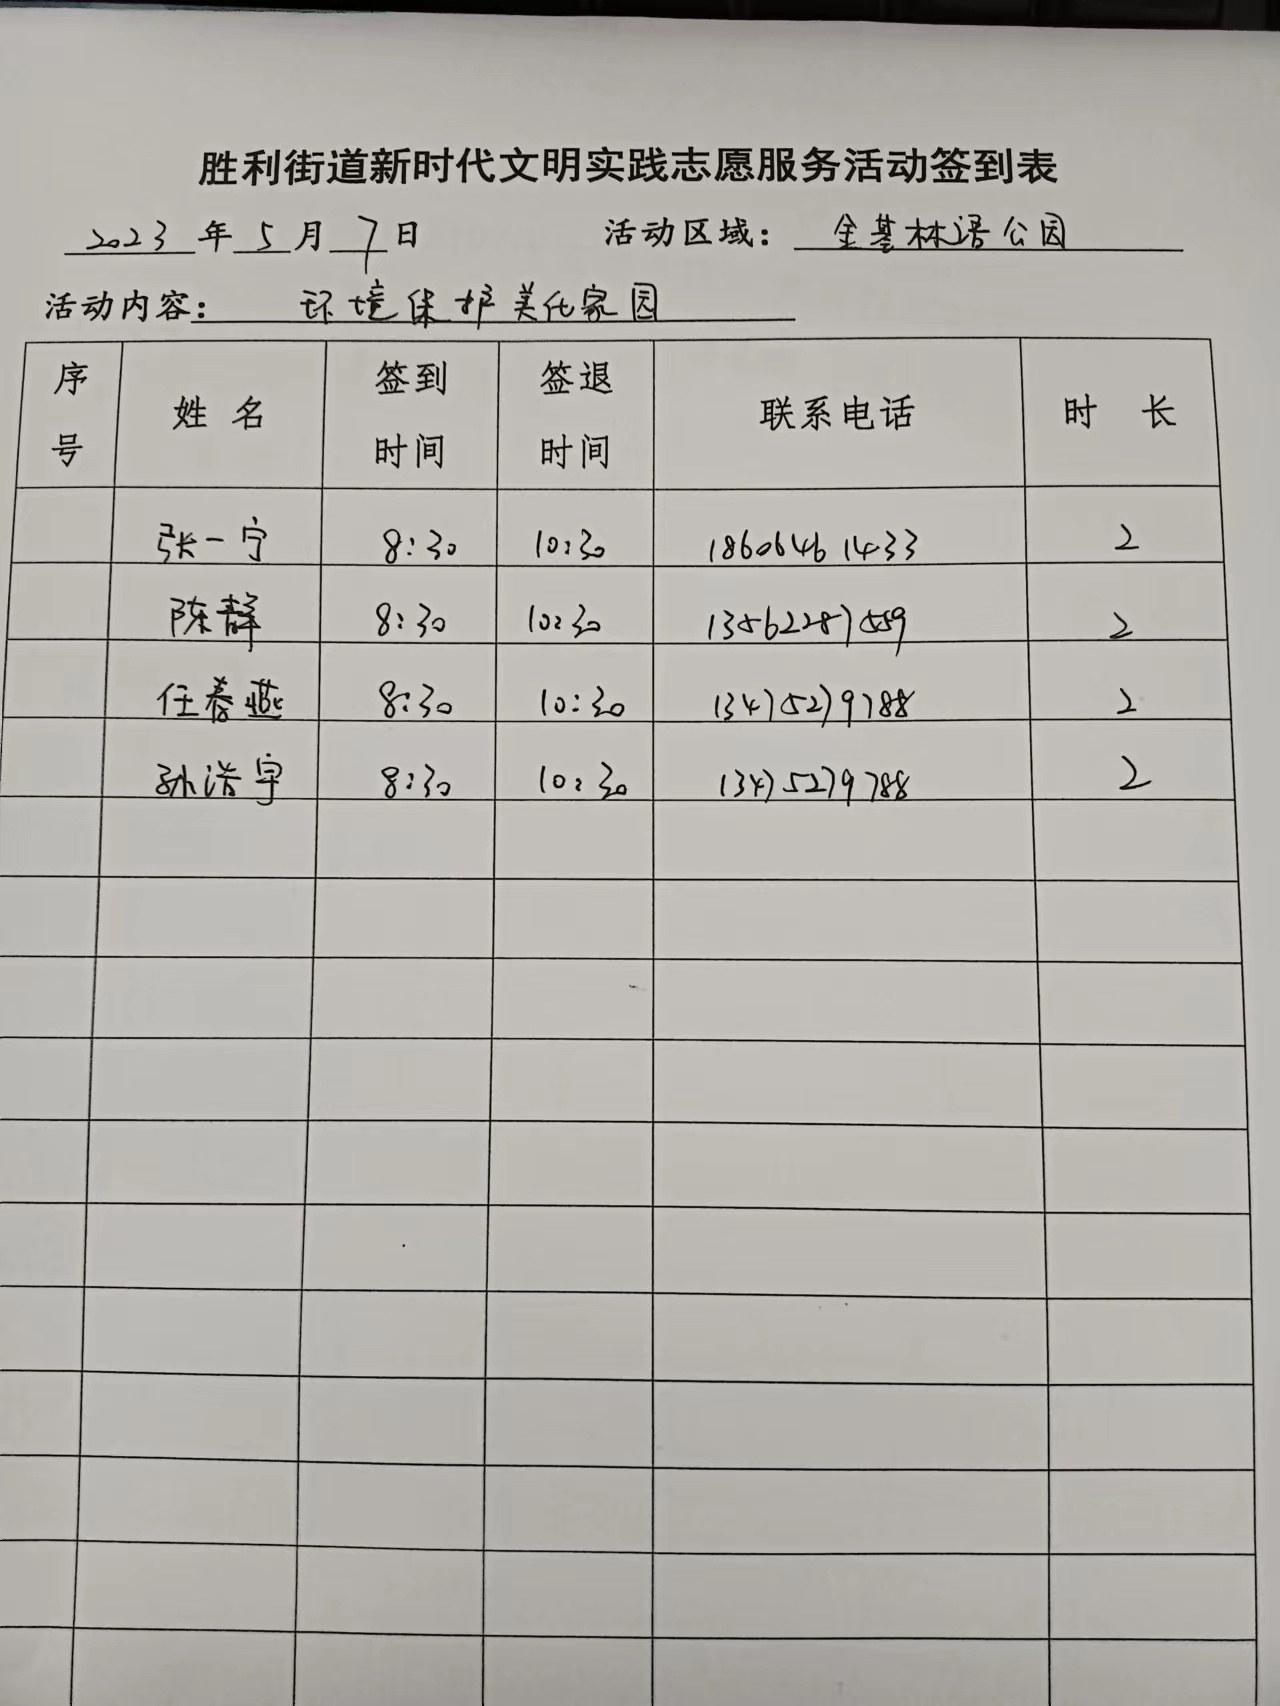 胜利街道新时代文明实践志愿服务活动签到表
2023 年 5 月 7 日 活动区域： 金基林语公园
活动内容： 环境保护美化家园
序号 姓名 签到时间 签退时间 联系电话 时长
张一宁 8:30 10:30 18606461433 2
陈静 8:30 10:30 13562287559 2
任春燕 8:30 10:30 13475279788 2
孙浩宇 8:30 10:30 13475279788 2